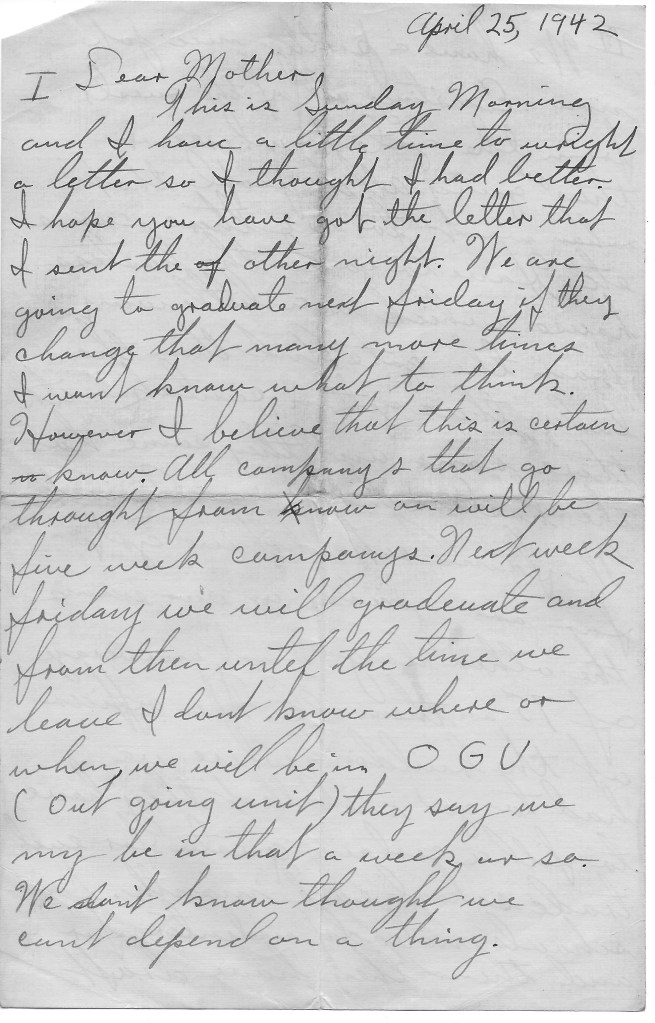 April 25, 1942
I Dear Mother,
This is Sunday Morning
and I have a little time to wright
a letter so I thought I had better.
I hope you have got the letter that
I sent the of other night. We are
going to graduate next friday if they
change that many more times
I wont know what to think.
However I believe that this is certain
know. All companys that go
throught from know on will be
five week companys. Next week
friday we will gradeuate and
from then untel the time we
leave I dont know where or
when we will be in O G U
(Out going unit) they say we
my be in that a week or so.
We don't know thought we
cant depend on a thing.